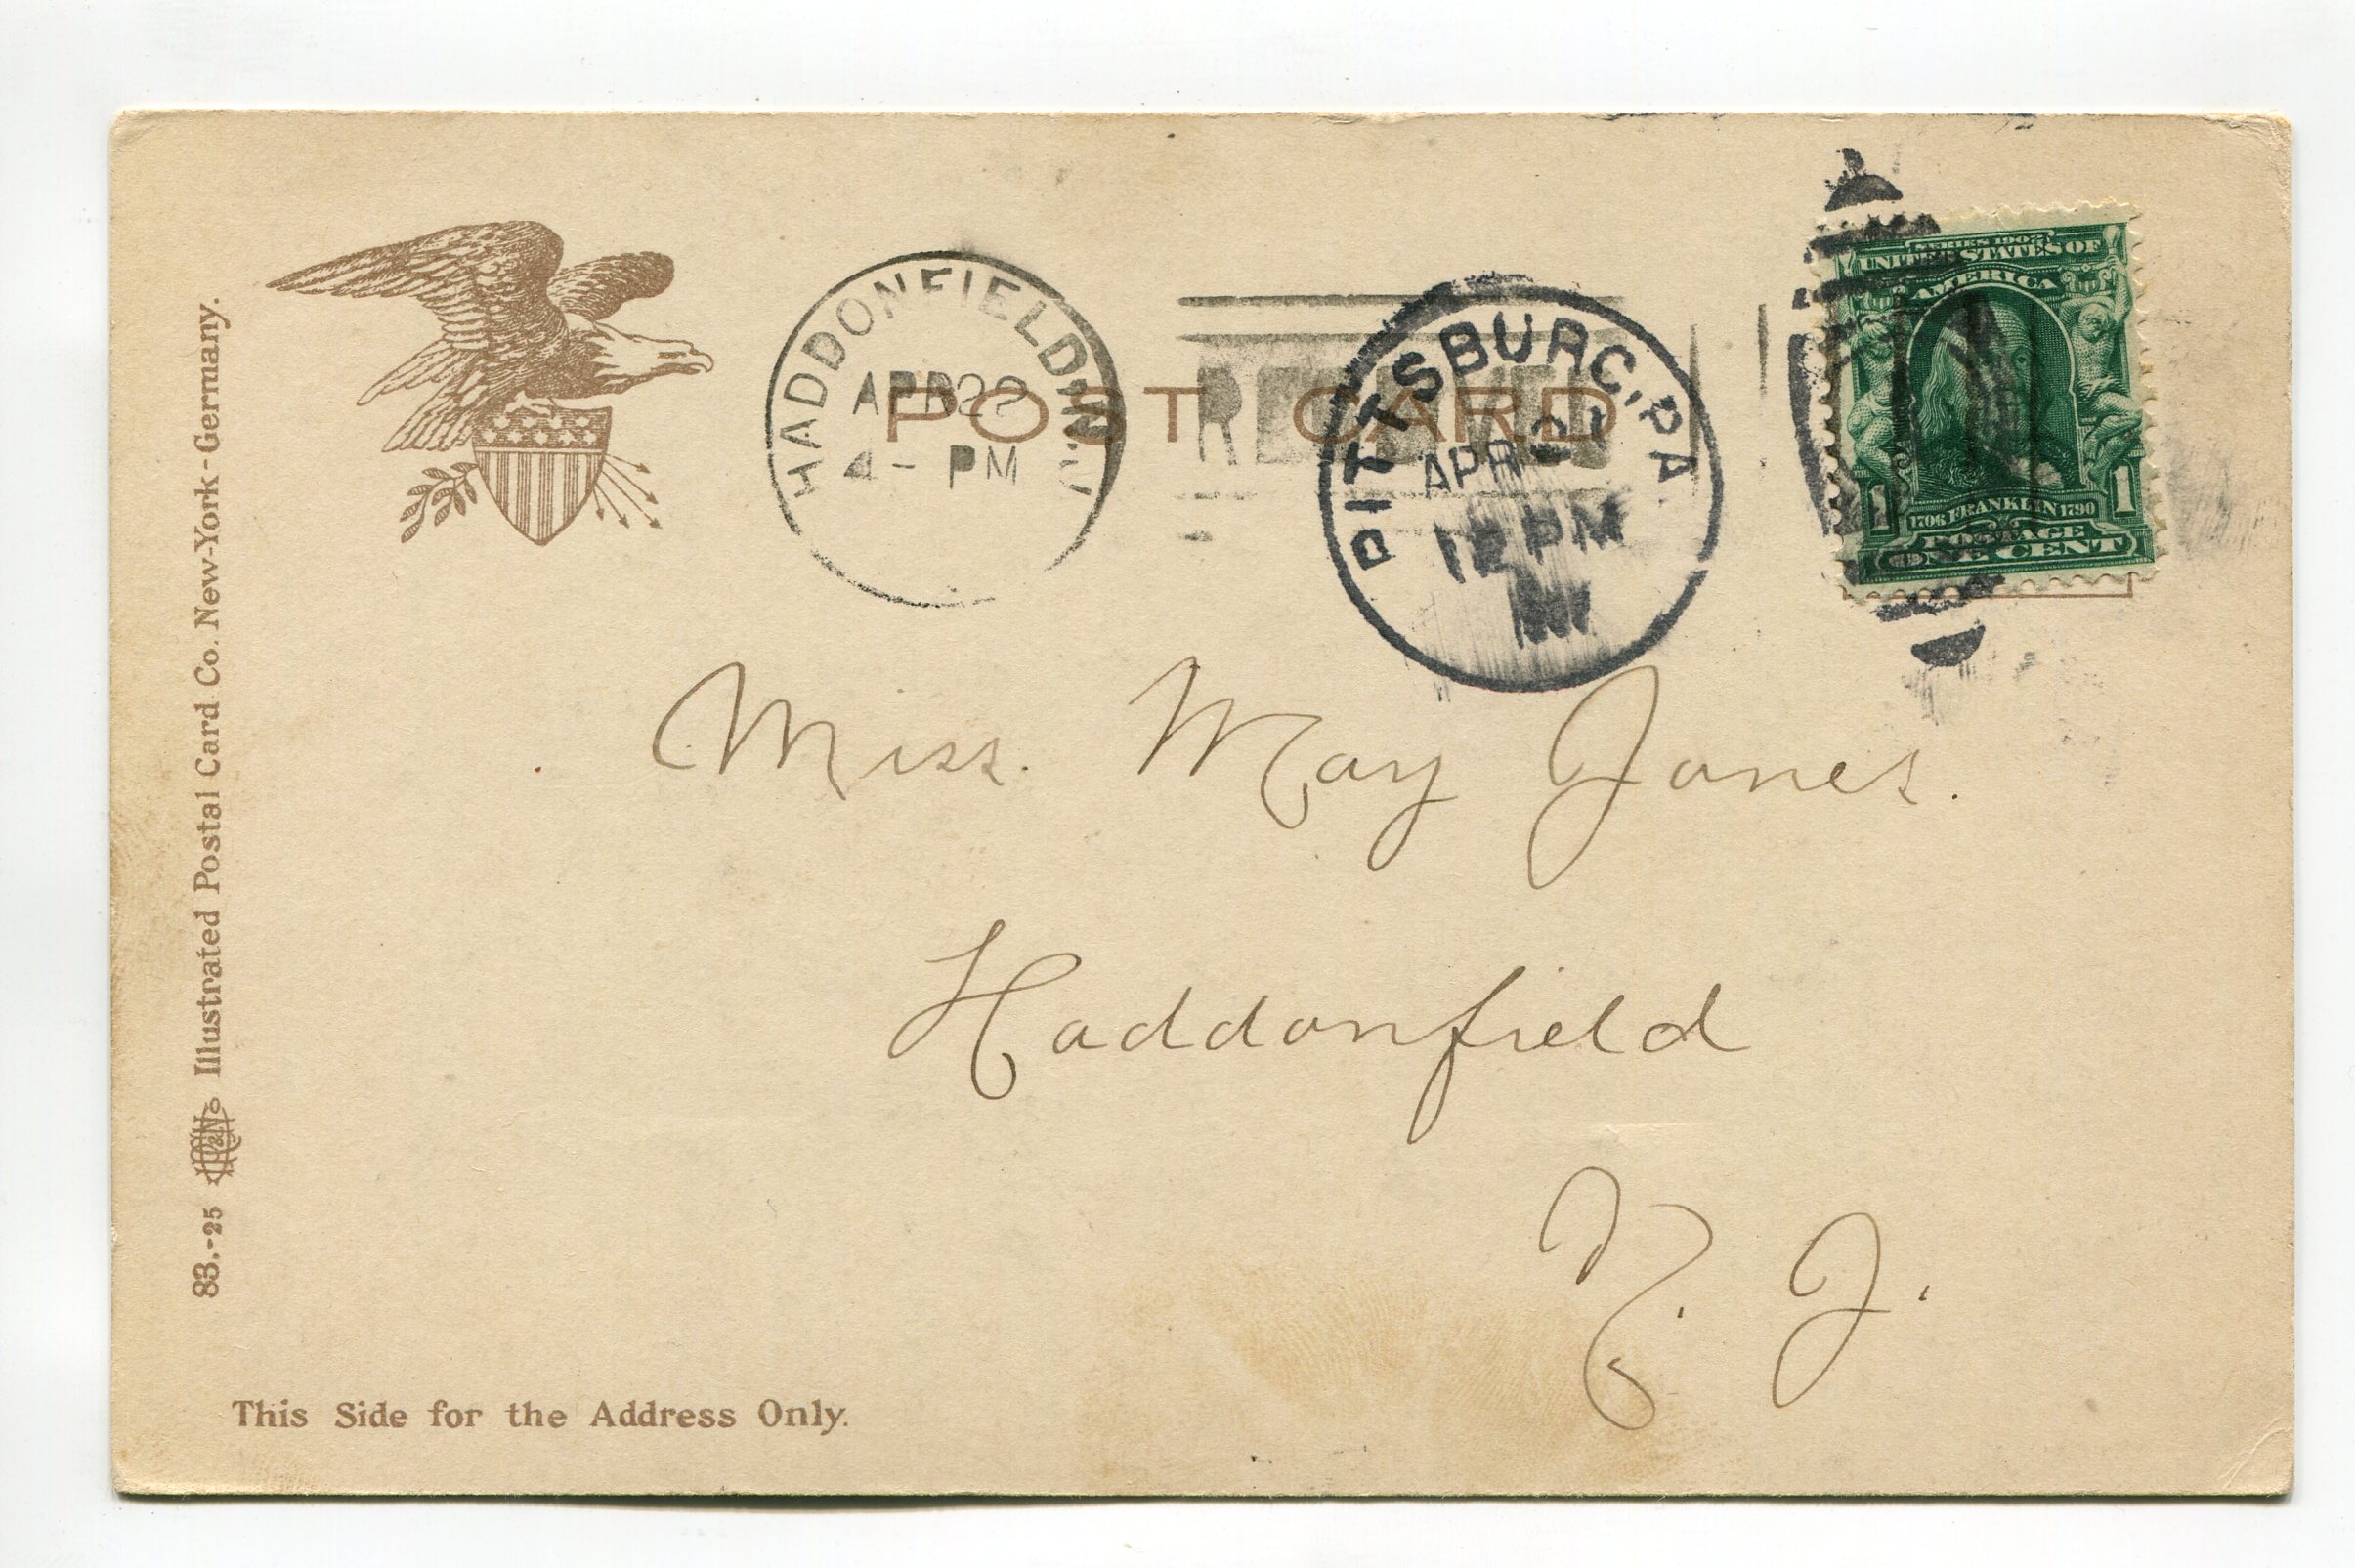 SERIES 1902
UNITED STATES OF
AMERICA
1 1706 FRANKLIN 1790 1
POSTAGE
ONE CENT
HADDONFIELD, N.J.
APR 22
4 - PM
POST CARD
RECEIVED
PITTSBURG, PA
APR 21
12 PM
Miss. May Jones.
Haddonfield
N. J.
83.-25 Illustrated Postal Card Co. New-York-Germany.
This Side for the Address Only.